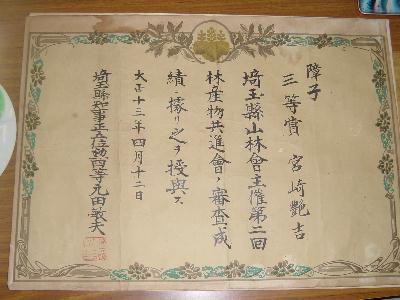 障子
三等賞 宮崎艶吉
埼玉縣山林會主催第二回
林産物共進會ノ審査ノ成
績ニ據リ之ヲ授與ス
大正十三年四月十二日
埼玉縣知事正五位勲四等元田敏夫